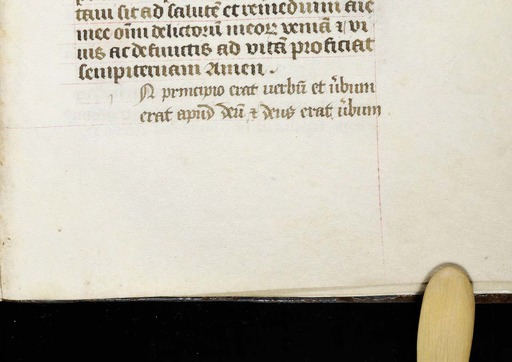 tam sit ad salutē et remediūm aīe
mee oīm delictorū meor veniā ⁊ vi
uis ac defunctis ad vitā proficiat
sempiternam Amen .
N principio erat verbū et v̄bum
erat apud deū ⁊ deus erat v̄bum